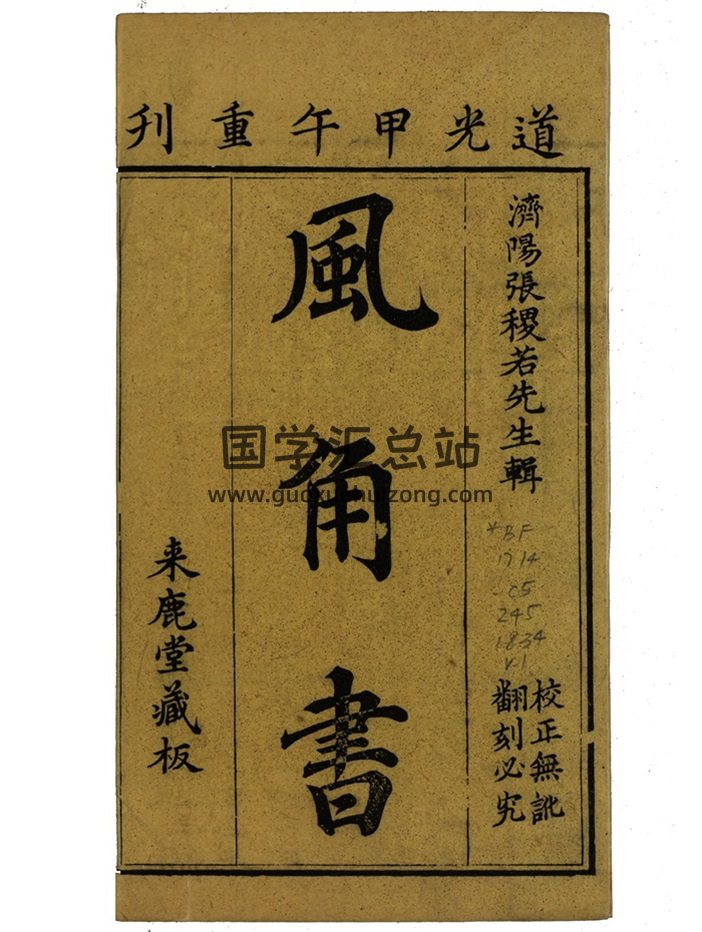 道光甲午重刋
濟陽張稷若先生輯
校正無訛
翻刻必究
風角書
来鹿堂藏板
国学汇总站
www.guoxuehuizong.com
*BF
1714
.C5
245
1834
v.1